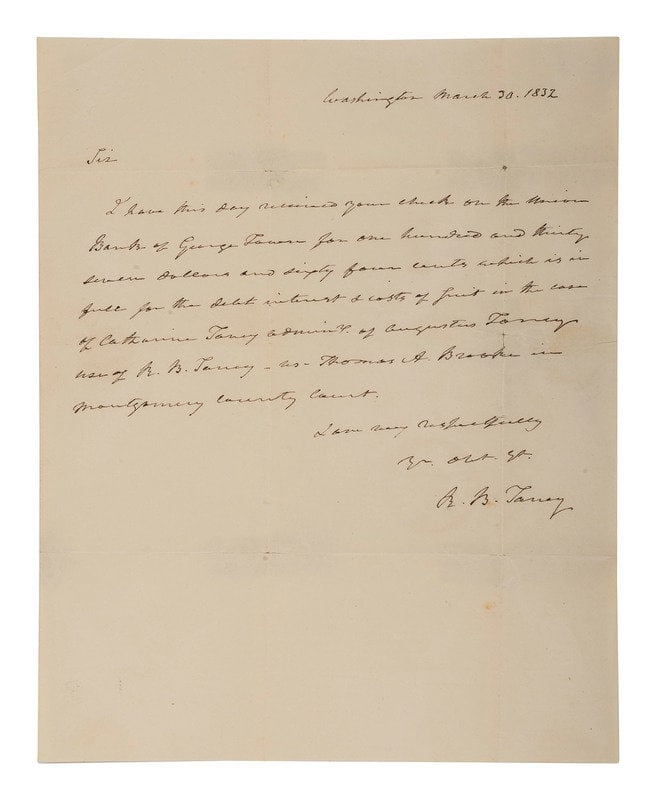 Washington March 30. 1832
Sir
I have this day received your check on the Union
Bank of George Town for one hundred and thirty
seven dollars and sixty four cents which is in
full for the debt interest & costs of suit in the case
of Catharine Taney adminx. of Augustus Taney
use of R. B. Taney - vs - Thomas A. Brooke in
Montgomery County Court.
I am very respectfully
yr. obt. st.
R. B. Taney